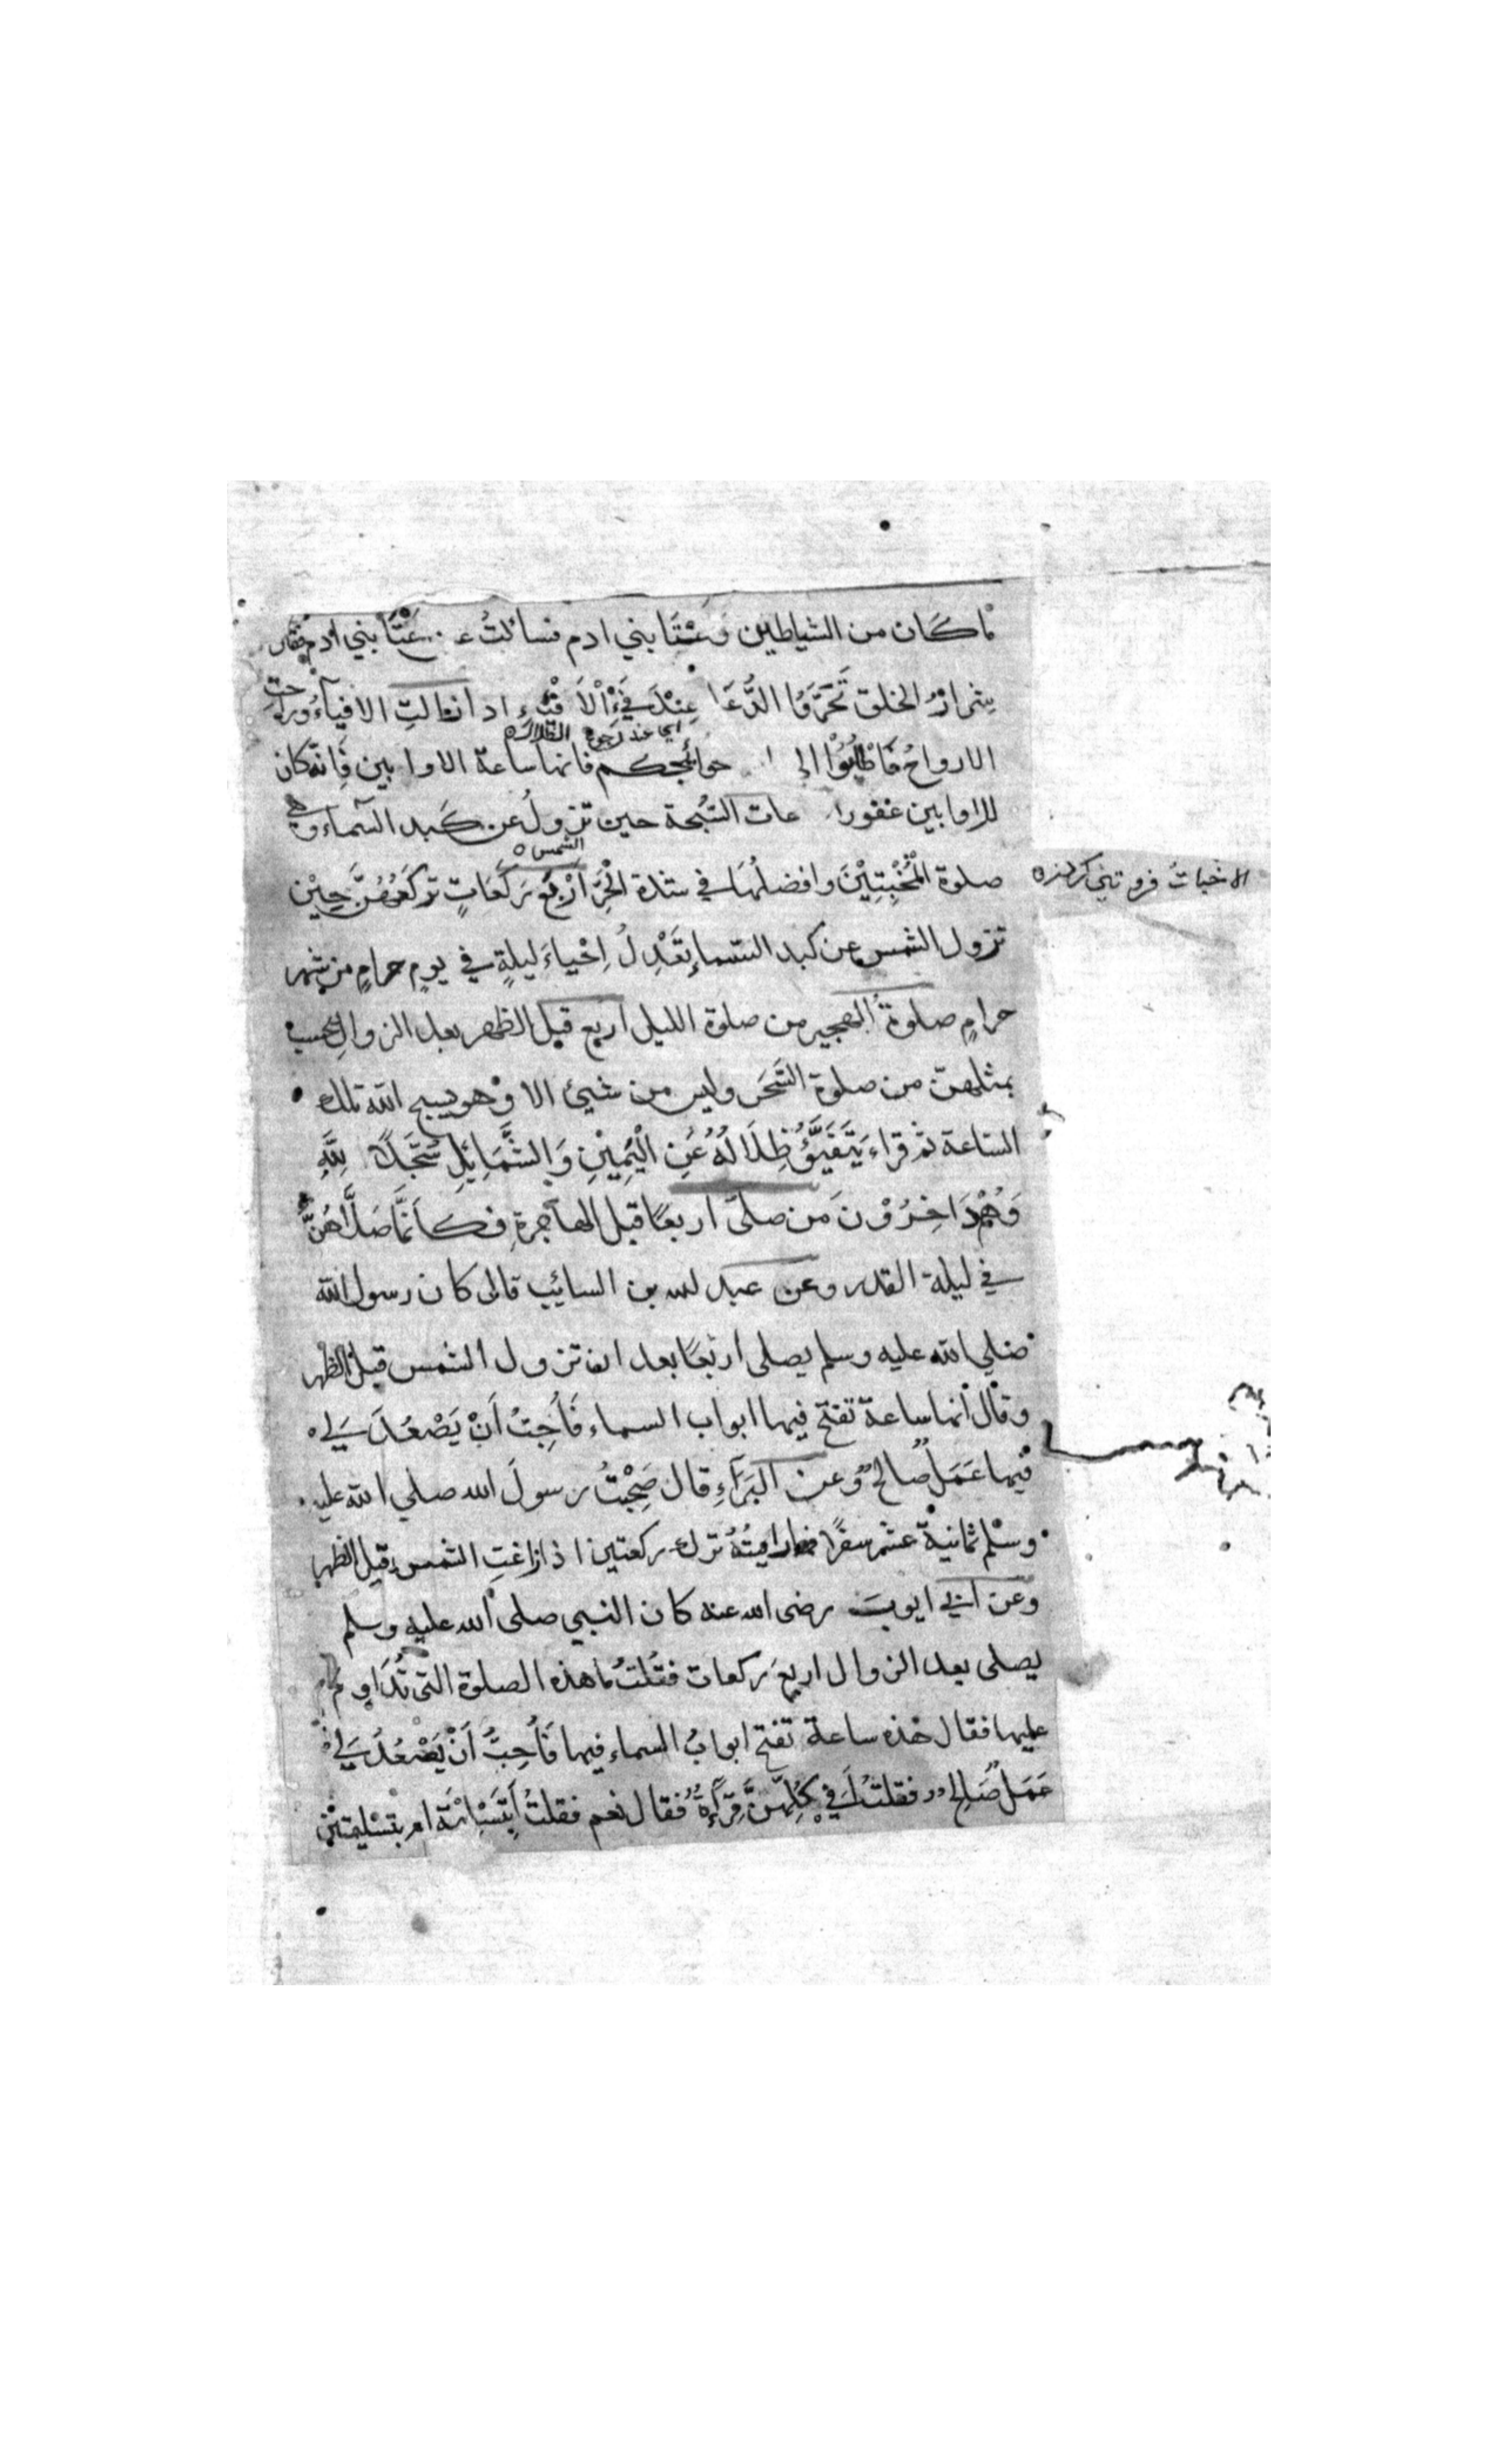 ما كان من الشياطين وعُتَا بني ادم فسألتُ عن عُتَا بني ادم فقال
شِرارُ الخلق تَحَرَّوُا الدُّعَا عِنْدَ فَيْءِ الْاَفْيَاءِ اذا زالتِ الافياءُ وراحت
اي عند رجوع الظلال
الارواحُ فَاطْلُبُوْا الى حوائجكم فانها ساعة الاوابين فَاِنه كان
للاوابين غفورا عات السُّبحة حين تزولُ عن كَبد السماء وهي
الشمس
صلوة الْمُخْبِتِيْنَ وافضلُهَا في شدة الْحَرِّ اَرْبَعُ رَكَعَاتٍ تركَعُهُنَّ حِيْنَ
الاخبات فروتني كردن
تزول الشمس عن كبد السماءِ تَعْدِلُ اِحْيَاءَ ليلةٍ في يومٍ حرامٍ من شهر
حرامٍ صلوةُ الهجير من صلوة الليل اربع قبل الظهر بعد الزوالِ تحسب
بمثلهنّ من صلوة السَّحَر وليس من شيئ الا وهو يسبح الله تلك
الساعة ثم قراء يَتَفَيَّؤُ ظِلَالُهُ عَنِ الْيَمِيْنِ وَالشَّمَائِلِ سُجَّدًا لِلّهِ
وَهُمْ دَاخِرُوْنَ من صلّى اربعًا قبل الهاجرةِ فكاَنَّمَا صَلَّاهُنَّ
في ليلة القدر وعن عبد لله بن السايب قال كان رسول الله
صلي الله عليه وسلم يصلى اربعًا بعد ان تزول الشمس قبل الظهر
وقال انها ساعة تفتح فيها ابواب السماء فَأُحِبُّ اَنْ يَصْعَدَ لِي
فيها عَمَلٌ صالحٌ وعن البَرَآءِ قال صَحِبْتُ رسولَ الله صلي الله عليه
وسلم ثمانيةَ عشر سفرًا فما رايتُهُ ترك ركعتين اذا زاغتِ الشمس قبل الظهر
وعن ابي ايوبَ رضى الله عنه كان النبي صلى الله عليه وسلم
يصلى بعد الزوال اربعَ ركعات فقُلتُ ما هذه الصلوة التى تُدَاوِم
عليها فقال هذه ساعة تفتح ابوابُ السماء فيها فَاُحِبُّ اَنْ يَصْعَدَ لِي
عَمَلٌ صَالِحٌ فقلتُ اَفي كُلِّهِنَّ قِرَآءةٌ فقال نعم فقلتُ اَبِتَسْلِيْمَةٍ ام بتسْليمتَيْن